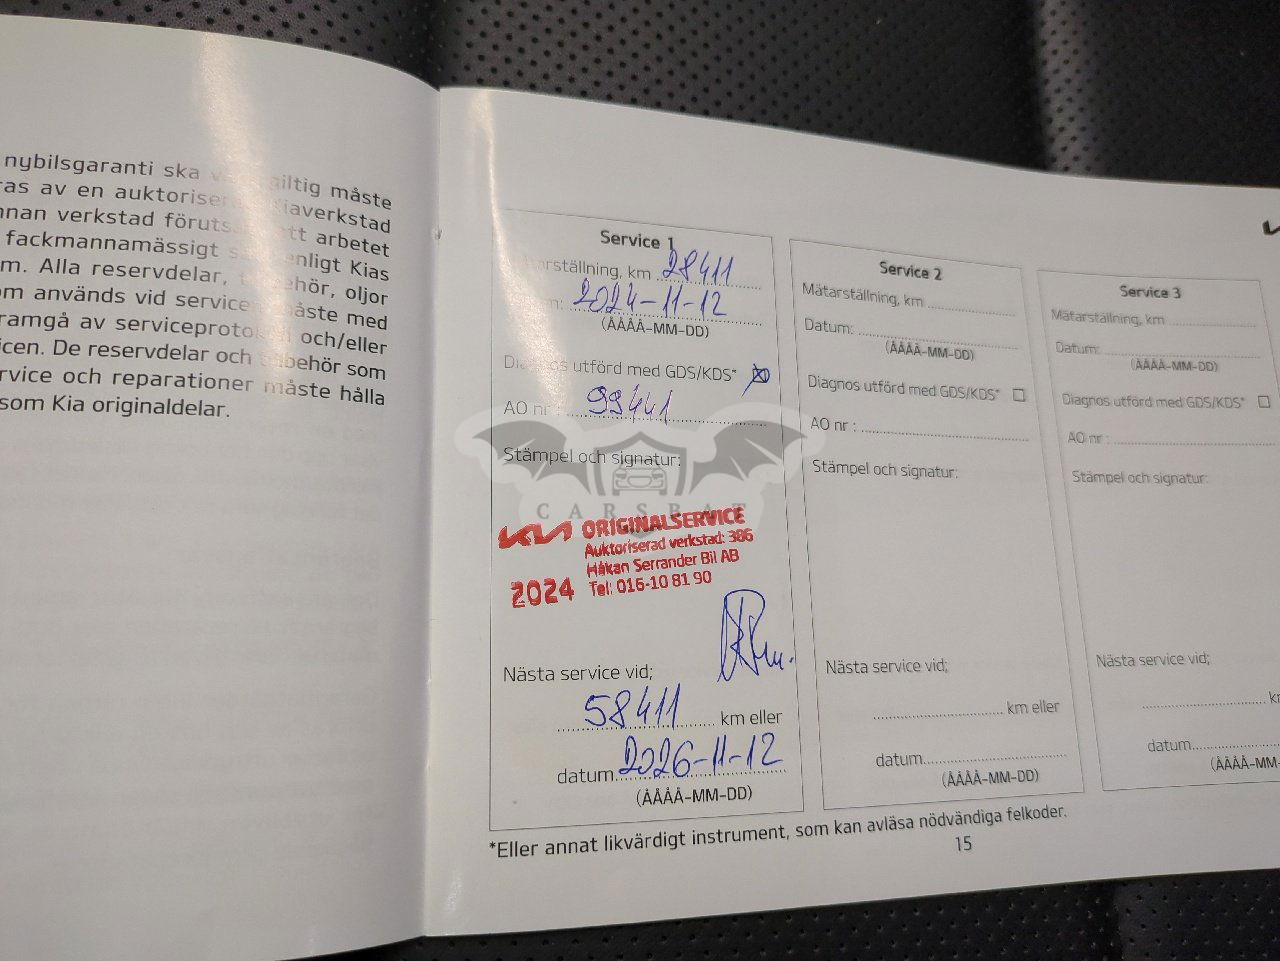 nybilsgaranti ska giltig måste
ras av en auktoriserad Kiaverkstad
nnan verkstad förutsatt att arbetet
fackmannamässigt enligt Kias
m. Alla reservdelar, tillbehör, oljor
om används vid servicen måste med
ramgå av serviceprotokoll och/eller
icen. De reservdelar och tillbehör som
rvice och reparationer måste hålla
som Kia originaldelar.
Service 1
Mätarställning, km 28411
Datum: 2024-11-12
(ÅÅÅÅ-MM-DD)
Diagnos utförd med GDS/KDS*
AO nr : 99441
Stämpel och signatur:
CARSBAT
KIA ORIGINALSERVICE
Auktoriserad verkstad: 386
Håkan Serrander Bil AB
2024 Tel: 016-10 81 90
Nästa service vid;
58411 km eller
datum 2026-11-12
(ÅÅÅÅ-MM-DD)
Service 2
Mätarställning, km
Datum:
(ÅÅÅÅ-MM-DD)
Diagnos utförd med GDS/KDS*
AO nr :
Stämpel och signatur:
Nästa service vid;
km eller
datum
(ÅÅÅÅ-MM-DD)
Service 3
Mätarställning, km
Datum:
(ÅÅÅÅ-MM-DD)
Diagnos utförd med GDS/KDS*
AO nr :
Stämpel och signatur:
Nästa service vid;
km
datum
(ÅÅÅÅ-MM-
*Eller annat likvärdigt instrument, som kan avläsa nödvändiga felkoder.
15